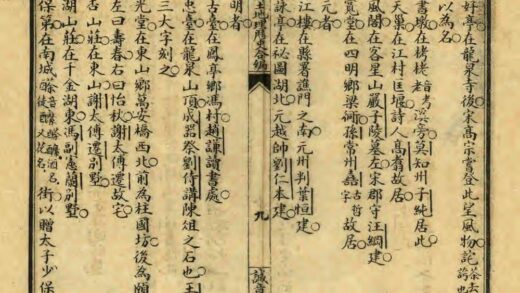 好亭在龍泉寺後宋高宗嘗登此望風物詫茶去誇也
以爲名
書墩在栲栳 老旁莫知州子純居此
天巢在江村匡堰詩人高翥故居
風閣在客星山嚴子陵墓左宋郡守汪綱建
寬堂在四明鄉梁衕孫常州嚞 古哲字故居
元者
江樓在縣署譙門之南元州判葉恒建
詠亭在祕圖湖北元越帥劉仁本建
九
明者
古臺在鳳亭鄉馮村趙謙讀書處
燾臺在龍泉山頂成器祭劉侍講陳俎之石也王
三大字刻之
光堂在東山鄉萬安橋西北前爲柱國坊後爲頤
左曰壽春右曰怡秋謝太傅遷故宅
杏山莊在東山謝太傅遷別墅
湖山莊在千金湖東馮副憲蘭別墅
保第在南城 街以贈太子少保